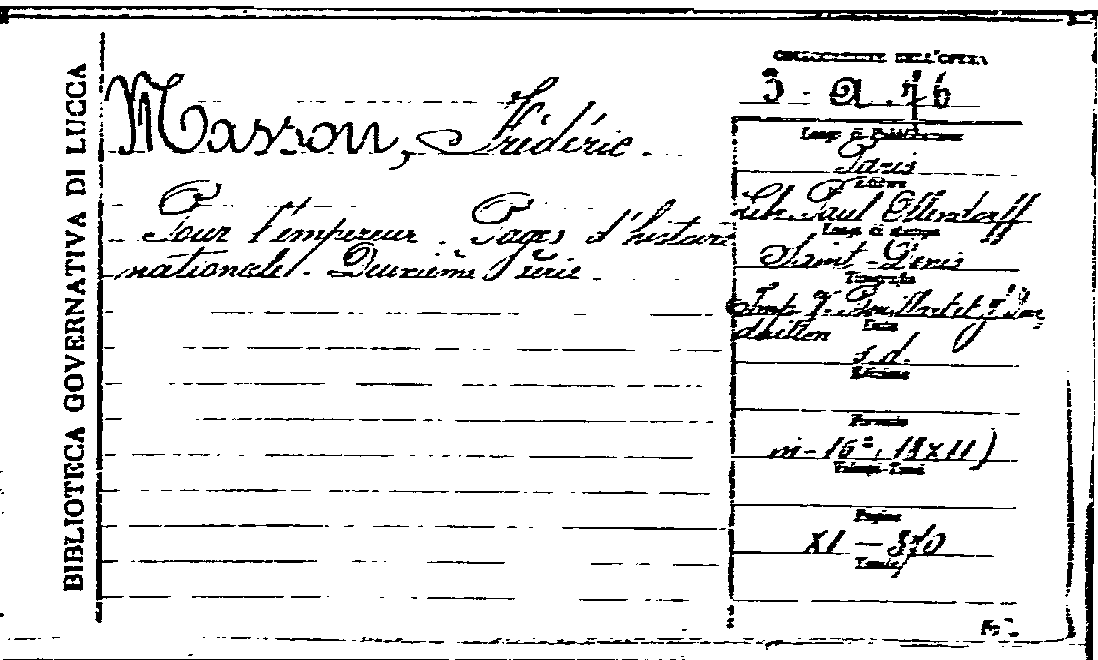 BIBLIOTECA GOVERNATIVA DI LUCCA
Masson, Frédéric.
Pour l'empereur. Pages d'histoire
nationale. Deuxième série.
COLLOCAZIONE DELL'OPERA
3 - a. 76
Luogo di Pubblicazione
Paris
Editore
Lib. Paul Ollendorff
Luogo di stampa
Saint-Denis
Tipografia
Imp.
Data
s. d.
Edizione
Formato
in-16°, 18 x 11)
Volumi-Tomi
Pagine
XI - 370
Tavole